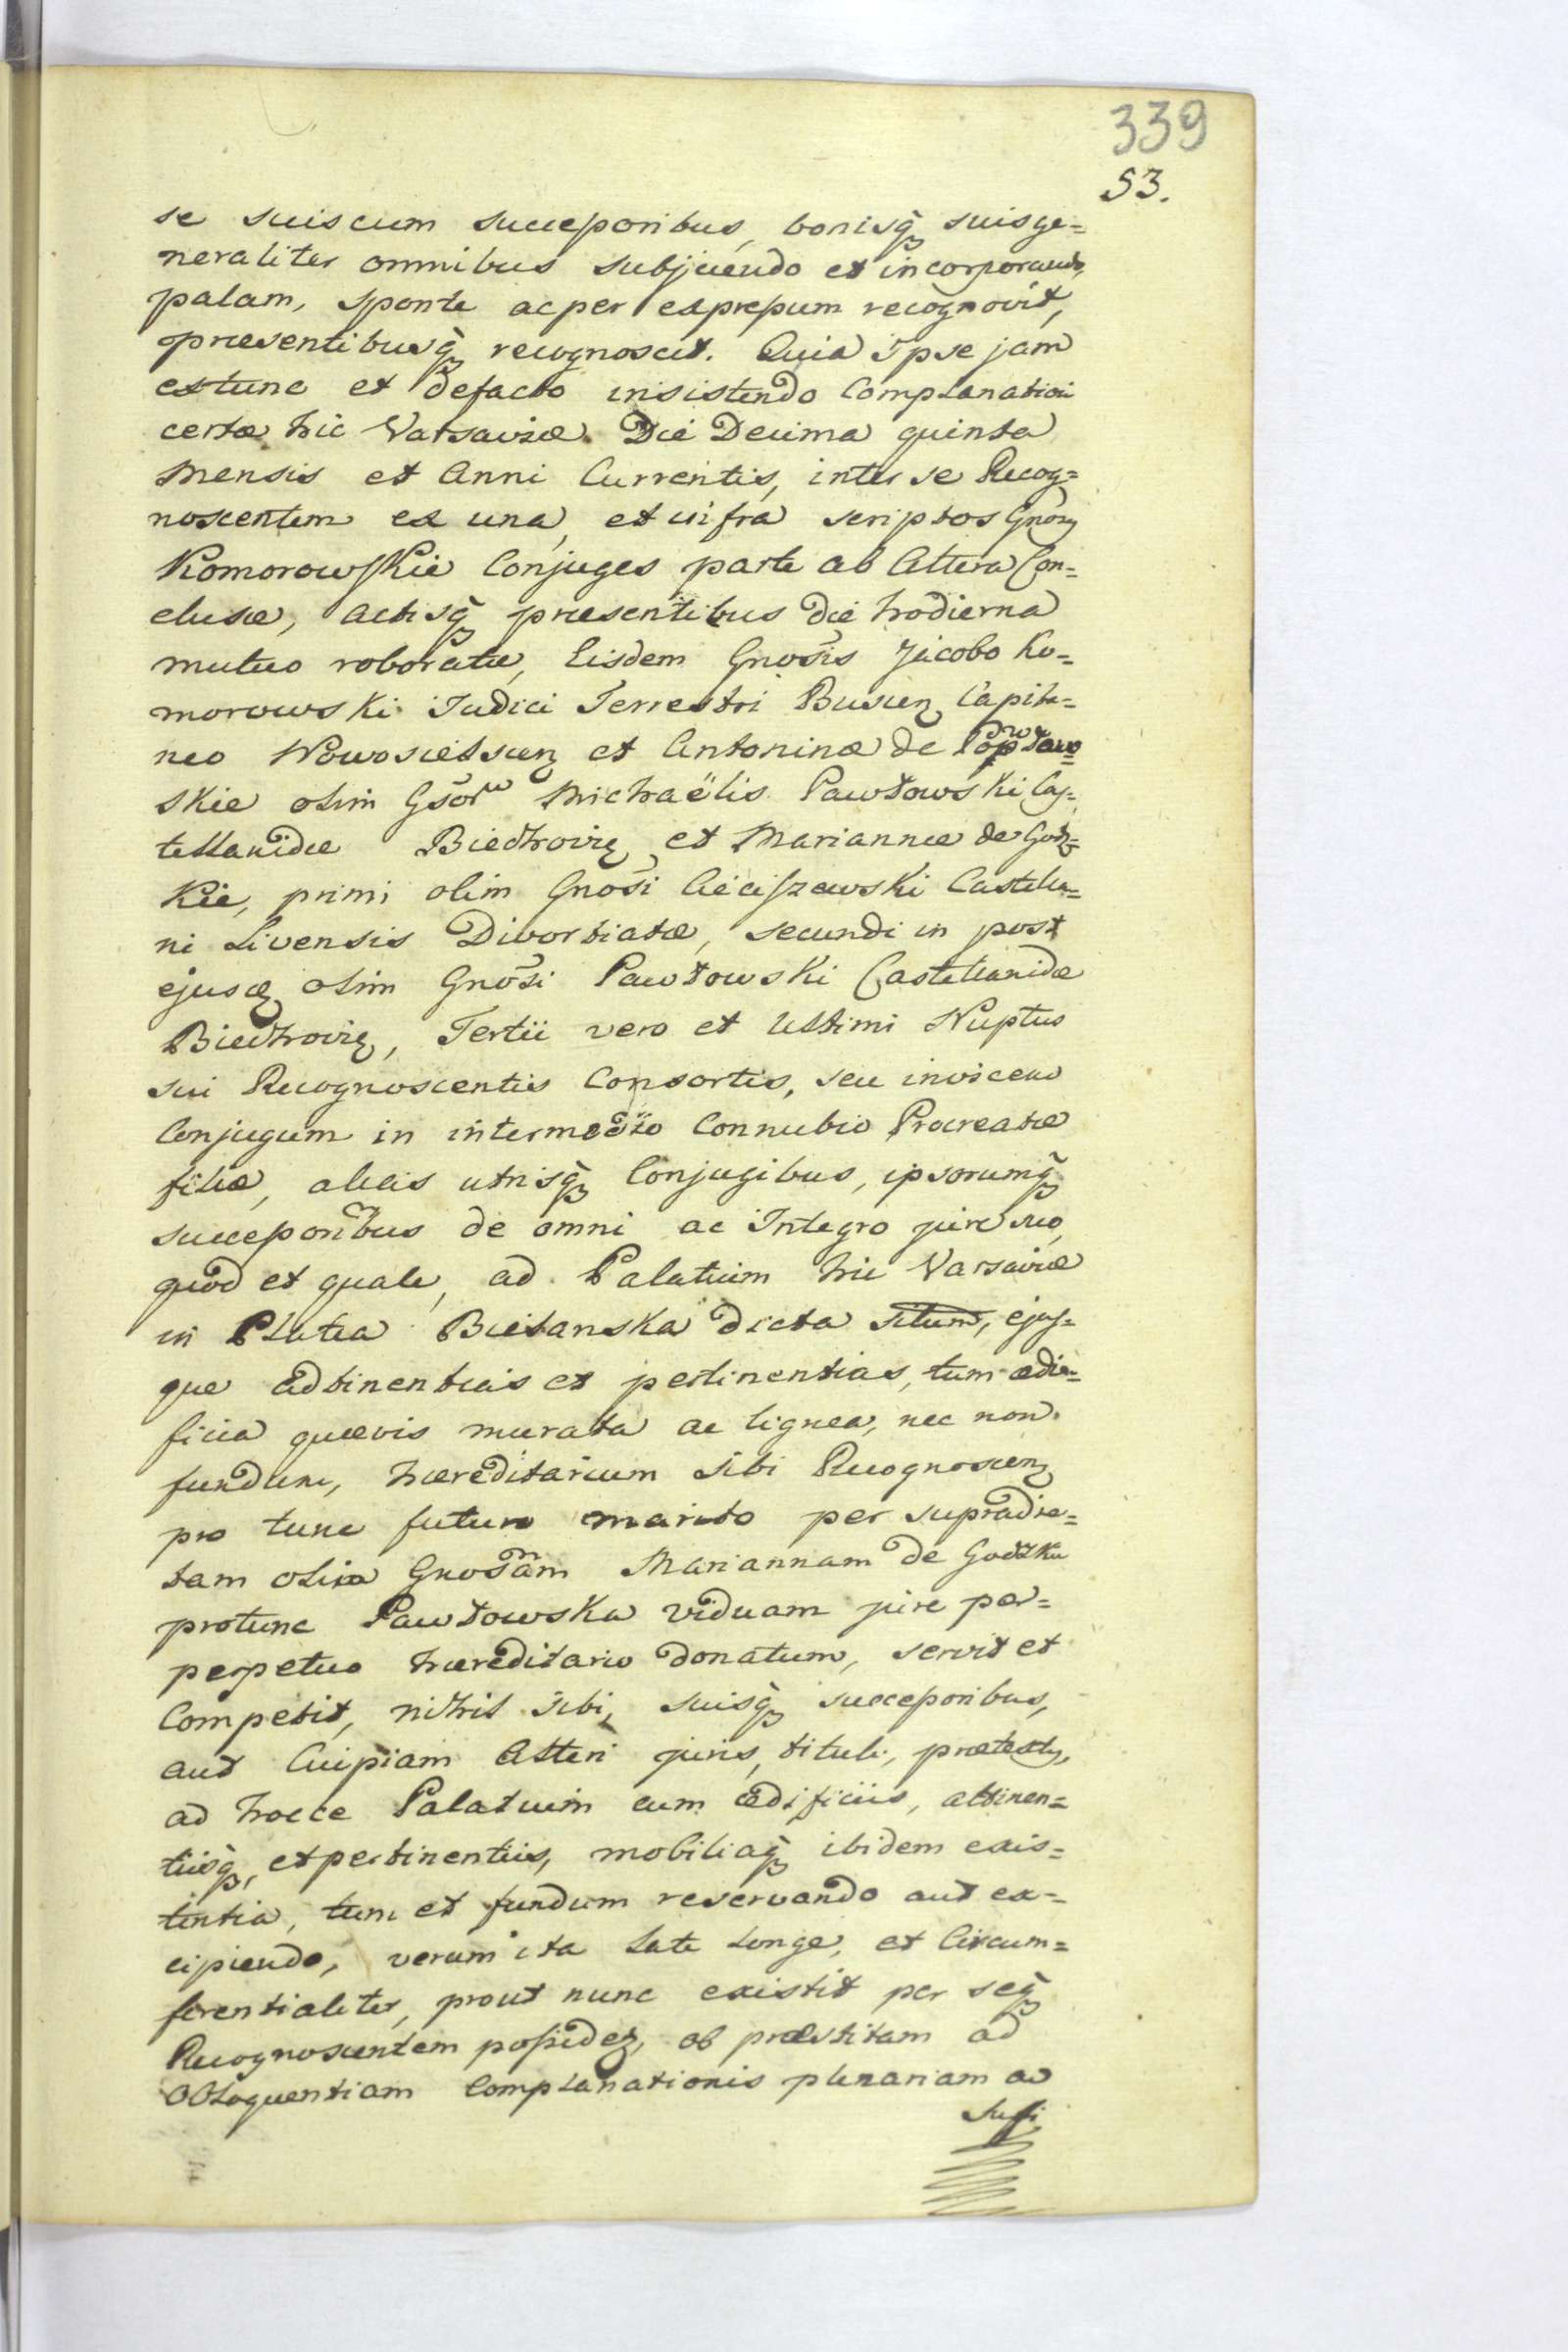 339
53.
se suiscum successoribus, bonisq́ꝫ suis ge=
neraliter omnibus subjiciendo et incorporando,
palam, sponte ac per expressum recognovit,
præsentibusq́ꝫ recognoscit. Quia ipse jam
extunc et defacto insistendo Complanationi
certæ hic Varsaviæ Die Decima quinta
Mensis et Anni Currentis, inter se Recog=
noscentem ex una, et infra scriptos Gnõsꝫ
Komorowskie Conjuges parte ab Altera Con=
clusæ, actisq́ꝫ præsentibus die hodierna
mutuo roboratæ, Eisdem Gnõsis Jacobo Ko=
morowski Iudici Terrestri Buscenꝫ Capita=
neo Nowosielscenꝫ et Antoninæ de Pawłow=
skie olim Gsõrũ Michaëlis Pawłowski Cas=
tellanidæ Biechovieꝫ, et Mariannæ de Godz=
kie, primi olim Gnõsi Cieciszewski Castella=
ni Livensis Divortiatæ, secundi in post
ejusdꝫ olim Gnõsi Pawłowski Castellanidæ
Biechovieꝫ, Tertii vero et Ultimi Nuptus
sui Recognoscentis Consortis, seu invicem
Conjugum in intermedio Connubio Procreatæ
filiæ, aliàs utrisq́ꝫ Conjugibus, ipsorumq́ꝫ
successoribus de omni ac Integro jure suo,
quod et quale, ad Palatium hic Varsaviæ
in Platea Bielanska dicta situm, ejus=
que adtinentias et pertinentias, tum ædi=
ficia quævis murata ac lignea, nec non
fundum, hæreditarium sibi Recognoscenꝫ
pro tunc futuro marito per supradic=
tam olim Gnosãm Mariannam de Godzkie
protunc Pawłowska viduam jure per=
perpetuo hæreditario donatum, servit et
Competit, nihil sibi, suisq́ꝫ successoribus,
aut Cuipiam Alteri juris, tituli, prætextus,
ad hocce Palatium cum ædificiis, attinen=
tiisq́ꝫ, et pertinentiis, mobiliaq́ꝫ ibidem exis=
tentia, tum et fundum reservando aut ex=
cipiendo, verum ita late longe, et Circum=
ferentialiter, prout nunc existit per seq́ꝫ
Recognoscentem possidetꝫ, ob præstitam ad
Obloquentiam Complanationis plenariam ac
suffi